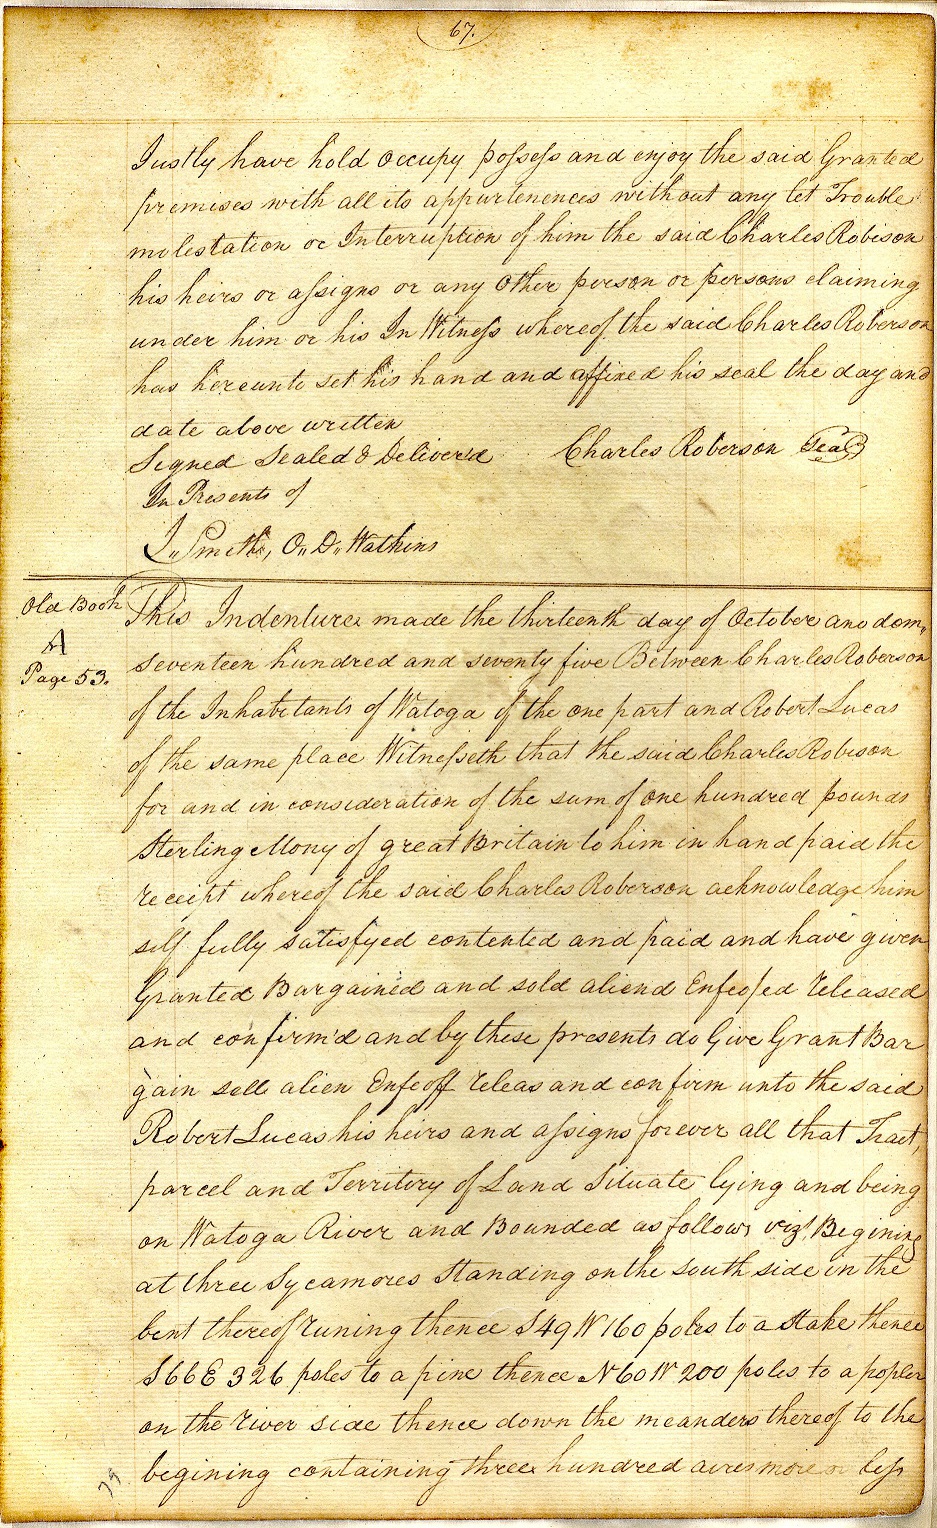 67.
Justly have hold occupy possess and enjoy the said Granted
premises with all its appurtenences without any let Trouble
molestation or Interruption of him the said Charles Robison
his heirs or assigns or any other person or persons claiming
under him or his In Witness whereof the said Charles Roberson
has hereunto set his hand and affixed his seal the day and
date above written
Signed Sealed & Deliver'd Charles Roberson Seal
In Presents of
J. Smith, O.. D.. Watkins
Old Book
A
Page 53.
This Indenture made the thirteenth day of October ano dom..
seventeen hundred and seventy five Between Charles Roberson
of the Inhabitants of Watoga of the one part and Robert Lucas
of the same place Witnesseth that the said Charles Robison
for and in consideration of the sum of one hundred pounds
Sterling Mony of great Britain to him in hand paid the
receipt whereof the said Charles Roberson acknowledge him
self fully satisfyed contented and paid and have given
Granted Bargained and sold aliend Enfeofed released
and confirm'd and by these presents do Give Grant Bar
gain sell alien Enfeoff releas and confirm unto the said
Robert Lucas his heirs and assigns forever all that Tract,
parcel and Territiry of Land Situate lying and being
on Watoga River and Bounded as follows vizt. Begining
at three Sycamores Standing on the South side in the
bent thereof runing thence S49W 160 poles to a Stake thence
S66E 326 poles to a pine thence N60W 200 poles to a popler
on the river side thence down the meanders thereof to the
begining containing three hundred acres more or less
79